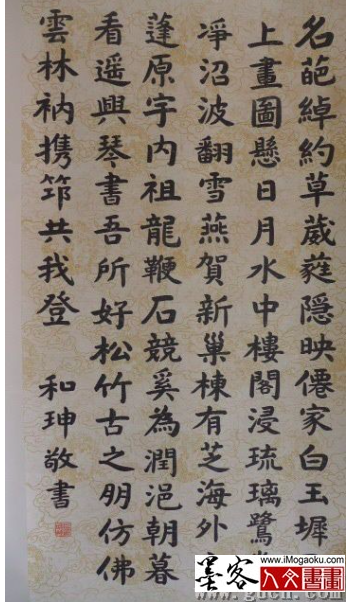 名葩綽約草葳蕤隱映僊家白玉墀
上畫圖懸日月水中樓閣浸琉璃鷺
淨沼波翻雪燕賀新巢棟有芝海外
蓬原宇内祖龍鞭石競奚為潤浥朝暮
看遥興琴書吾所好松竹古之朋仿佛
雲林衲携筇共我登
和珅敬書
墨客
www.iMogaoku.com
人文書畫
www.gucn.com